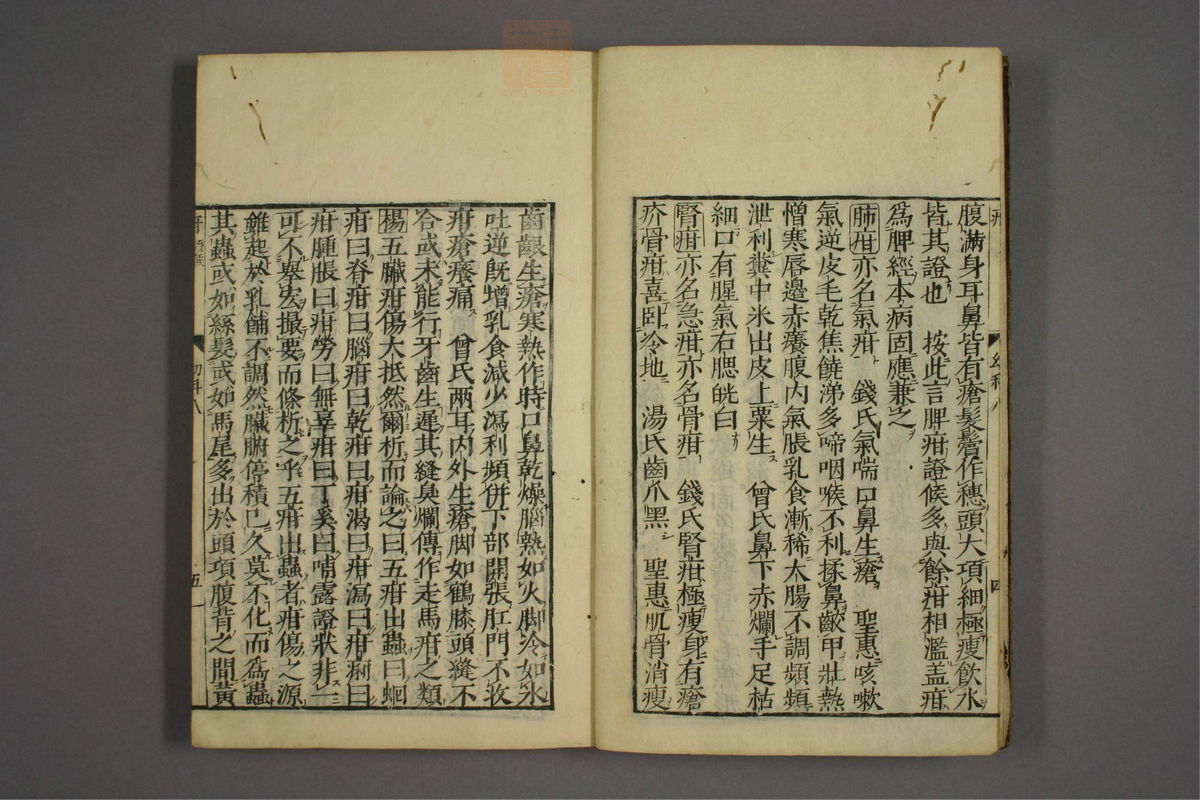 腹滿身耳鼻皆有瘡髮鬢作穗頭大項細極瘦飮水
皆其證也　按此言脾疳證候多與餘疳相濫盖疳
爲脾經本病固應兼之
肺疳亦名氣疳　錢氏氣喘口鼻生瘡　聖惠咳嗽
氣逆皮毛乾焦饒涕多啼咽喉不利揉鼻齩甲壯熱
憎寒唇邊赤癢腹内氣脹乳食漸稀大腸不調頻頻
泄利糞中米出皮上粟生　曾氏鼻下赤爛手足枯
細口有腥氣右腮㿠白
腎疳亦名急疳亦名骨疳　錢氏腎疳極瘦身有瘡
疥骨疳喜卧冷地　湯氏齒爪黑　聖惠肌骨消瘦
幼科八
四
齒齦生瘡寒熱作時口鼻乾燥腦熱如火脚冷如水
吐逆既增乳食減少瀉利頻併下部開張肛門不收
疳瘡癢痛　曾氏兩耳内外生瘡脚如鶴膝頭縫不
合或未能行牙齒生遲其縫臭爛傳作走馬疳之類
楊五臟疳傷大抵然爾析而論之曰五疳出蟲曰蛔
疳曰脊疳曰腦疳曰乾疳曰疳渴曰疳瀉曰疳痢曰
疳腫脹曰疳勞曰無辜疳曰丁奚曰哺露證狀非一
可不舉宏撮要而條析之乎五疳出蟲者疳傷之源
雖起於乳餔不調然臟腑停積已久莫不化而爲蟲
其蟲或如絲髮或如馬尾多出於頭項腹背之間黄
幼科八
五